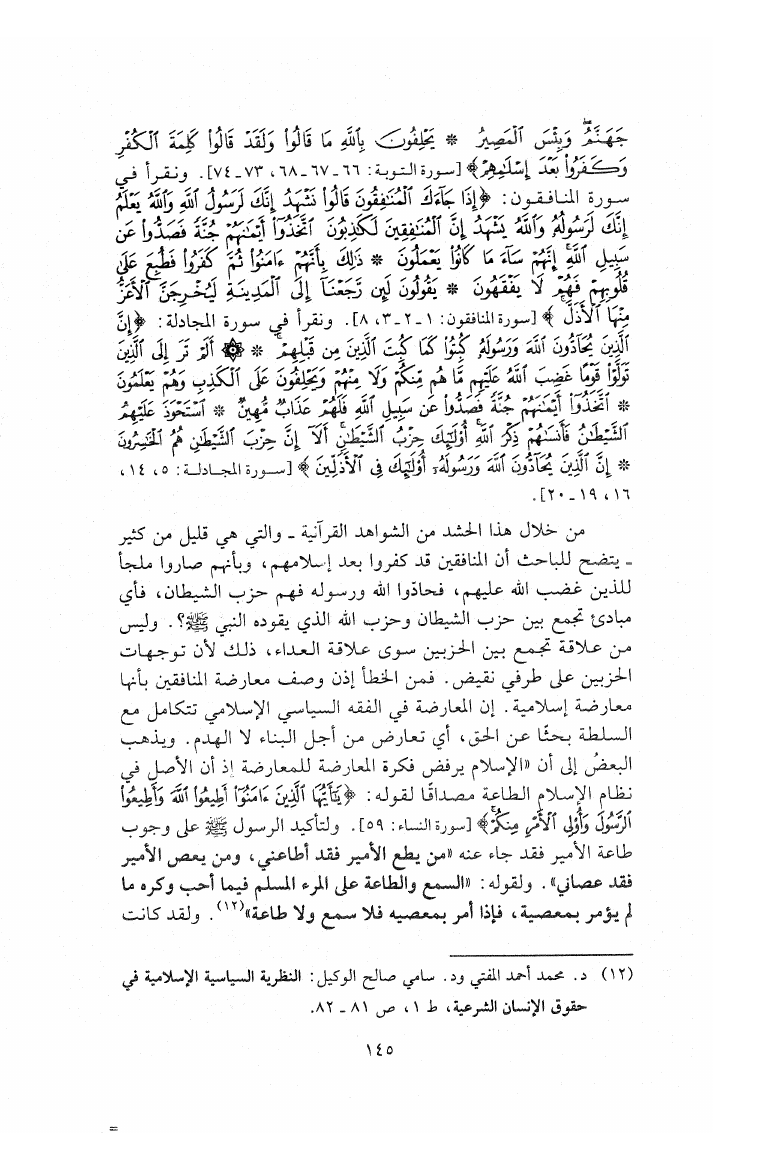 جَهَنَّمُ وَبِئْسَ الْمَصِيرُ * يَحْلِفُونَ بِاللَّهِ مَا قَالُوا وَلَقَدْ قَالُوا كَلِمَةَ الْكُفْرِ
وَكَفَرُوا بَعْدَ إِسْلَامِهِمْ﴾ [سورة التوبة: ٦٦ـ٦٧ـ٦٨، ٧٣ـ٧٤]. ونقرأ في
سورة المنافقون: ﴿إِذَا جَاءَكَ الْمُنَافِقُونَ قَالُوا نَشْهَدُ إِنَّكَ لَرَسُولُ اللَّهِ وَاللَّهُ يَعْلَمُ
إِنَّكَ لَرَسُولُهُ وَاللَّهُ يَشْهَدُ إِنَّ الْمُنَافِقِينَ لَكَاذِبُونَ اتَّخَذُوا أَيْمَانَهُمْ جُنَّةً فَصَدُّوا عَن
سَبِيلِ اللَّهِ إِنَّهُمْ سَاءَ مَا كَانُوا يَعْمَلُونَ * ذَلِكَ بِأَنَّهُمْ ءَامَنُوا ثُمَّ كَفَرُوا فَطُبِعَ عَلَى
قُلُوبِهِمْ فَهُمْ لَا يَفْقَهُونَ * يَقُولُونَ لَئِن رَّجَعْنَا إِلَى الْمَدِينَةِ لَيُخْرِجَنَّ الْأَعَزُّ
مِنْهَا الْأَذَلَّ﴾ [سورة المنافقون: ١ـ٢ـ٣، ٨]. ونقرأ في سورة المجادلة: ﴿إِنَّ
الَّذِينَ يُحَادُّونَ اللَّهَ وَرَسُولَهُ كُبِتُوا كَمَا كُبِتَ الَّذِينَ مِن قَبْلِهِمْ * ۞ أَلَمْ تَرَ إِلَى الَّذِينَ
تَوَلَّوْا قَوْمًا غَضِبَ اللَّهُ عَلَيْهِم مَّا هُم مِّنكُمْ وَلَا مِنْهُمْ وَيَحْلِفُونَ عَلَى الْكَذِبِ وَهُمْ يَعْلَمُونَ
* اتَّخَذُوا أَيْمَانَهُمْ جُنَّةً فَصَدُّوا عَن سَبِيلِ اللَّهِ فَلَهُمْ عَذَابٌ مُّهِينٌ * اسْتَحْوَذَ عَلَيْهِمُ
الشَّيْطَانُ فَأَنسَاهُمْ ذِكْرَ اللَّهِ أُوْلَئِكَ حِزْبُ الشَّيْطَانِ أَلَا إِنَّ حِزْبَ الشَّيْطَانِ هُمُ الْخَاسِرُونَ
* إِنَّ الَّذِينَ يُحَادُّونَ اللَّهَ وَرَسُولَهُ أُوْلَئِكَ فِي الْأَذَلِّينَ﴾ [سورة المجادلة: ٥، ١٤،
١٦، ١٩ـ٢٠].
من خلال هذا الحشد من الشواهد القرآنية ـ والتي هي قليل من كثير
ـ يتضح للباحث أن المنافقين قد كفروا بعد إسلامهم، وبأنهم صاروا ملجأ
للذين غضب الله عليهم، فحادّوا الله ورسوله فهم حزب الشيطان، فأي
مبادئ تجمع بين حزب الشيطان وحزب الله الذي يقوده النبي ﷺ؟. وليس
من علاقة تجمع بين الحزبين سوى علاقة العداء، ذلك لأن توجهات
الحزبين على طرفي نقيض. فمن الخطأ إذن وصف معارضة المنافقين بأنها
معارضة إسلامية. إن المعارضة في الفقه السياسي الإسلامي تتكامل مع
السلطة بحثًا عن الحق، أي تعارض من أجل البناء لا الهدم. ويذهب
البعضُ إلى أن «الإسلام يرفض فكرة المعارضة للمعارضة إذ أن الأصل في
نظام الإسلام الطاعة مصداقًا لقوله: ﴿يَا أَيُّهَا الَّذِينَ ءَامَنُوا أَطِيعُوا اللَّهَ وَأَطِيعُوا
الرَّسُولَ وَأُوْلِي الْأَمْرِ مِنكُمْ﴾ [سورة النساء: ٥٩]. ولتأكيد الرسول ﷺ على وجوب
طاعة الأمير فقد جاء عنه «من يطع الأمير فقد أطاعني، ومن يعص الأمير
فقد عصاني». ولقوله: «السمع والطاعة على المرء المسلم فيما أحب وكره ما
لم يؤمر بمعصية، فإذا أمر بمعصيه فلا سمع ولا طاعة»(١٢). ولقد كانت
(١٢) د. محمد أحمد المفتي ود. سامي صالح الوكيل: النظرية السياسية الإسلامية في
حقوق الإنسان الشرعية، ط ١، ص ٨١ ـ ٨٢.
١٤٥
=